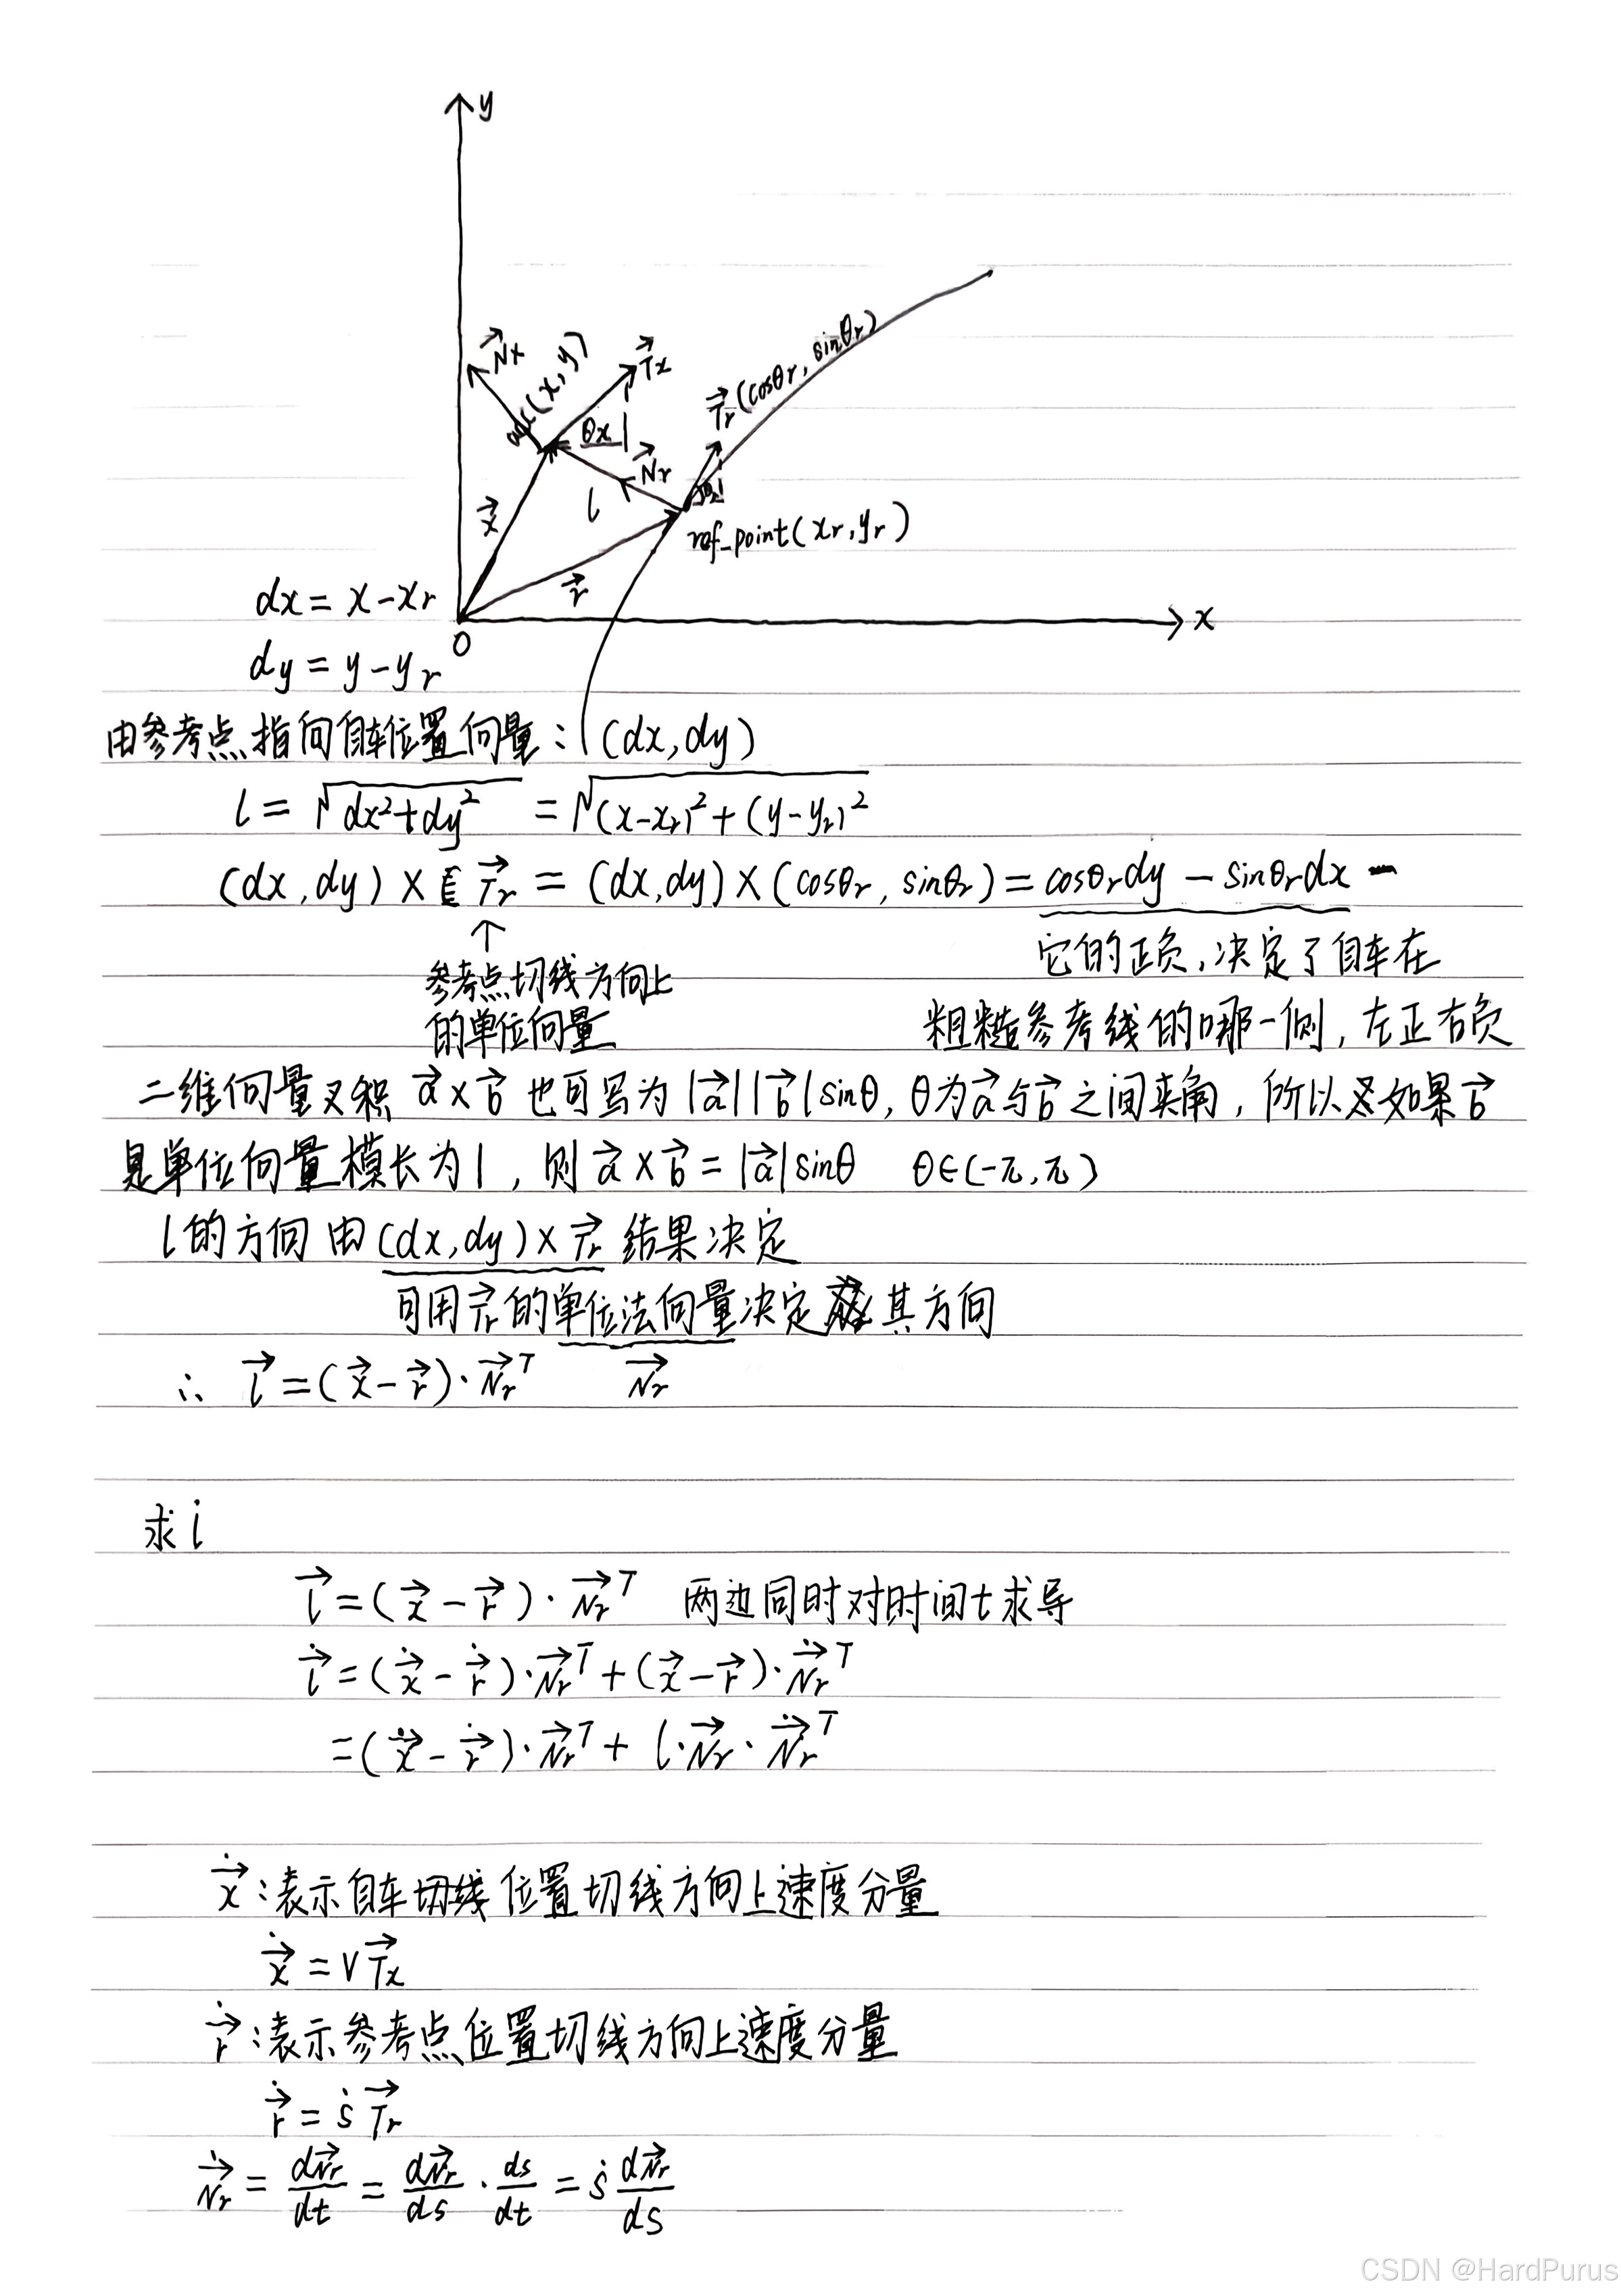 y
N⃗x
(x, y)
T⃗x
θx
T⃗r(cosθr, sinθr)
N⃗r
x⃗
l
ref_point(xr, yr)
r⃗
dx = x-xr
0
x
dy = y-yr
由参考点指向自车位置向量: (dx, dy)
l = √(dx²+dy²) = √((x-xr)²+(y-yr)²)
(dx, dy) × T⃗r = (dx, dy) × (cosθr, sinθr) = cosθrdy - sinθrdx
↑
它的正负,决定了自车在
参考点切线方向上
的单位向量
粗糙参考线的哪一侧, 左正右负
二维向量叉积 a⃗×b⃗ 也可写为 |a⃗||b⃗|sinθ, θ为a⃗与b⃗之间夹角, 所以如果b⃗
是单位向量模长为1, 则 a⃗×b⃗ = |a⃗|sinθ θ∈(-π, π)
l的方向 由(dx, dy)×T⃗r 结果决定
可用T⃗r的单位法向量决定其方向
∴ l⃗ = (x⃗-r⃗)·N⃗rᵀ N⃗r
求l̇
l⃗ = (x⃗-r⃗)·N⃗rᵀ 两边同时对时间t求导
l⃗̇ = (x⃗̇-r⃗̇)·N⃗rᵀ+(x⃗-r⃗)·N⃗̇rᵀ
=(x⃗̇-r⃗̇)·N⃗rᵀ+ l·N⃗r·N⃗̇rᵀ
x⃗̇:表示自车位置切线方向上速度分量
x⃗̇ = vT⃗x
r⃗̇:表示参考点位置切线方向上速度分量
r⃗̇ = ṡT⃗r
N⃗̇r = dN⃗r/dt = dN⃗r/ds · ds/dt = ṡ dN⃗r/ds
CSDN @HardPurus